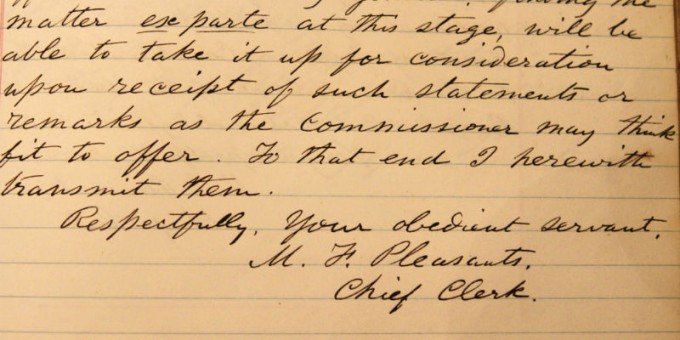 matter ex parte at this stage, will be
able to take it up for consideration
upon receipt of such statements or
remarks as the Commissioner may think
fit to offer. To that end I herewith
transmit them.
Respectfully, Your obedient servant,
M. F. Pleasants,
Chief Clerk.